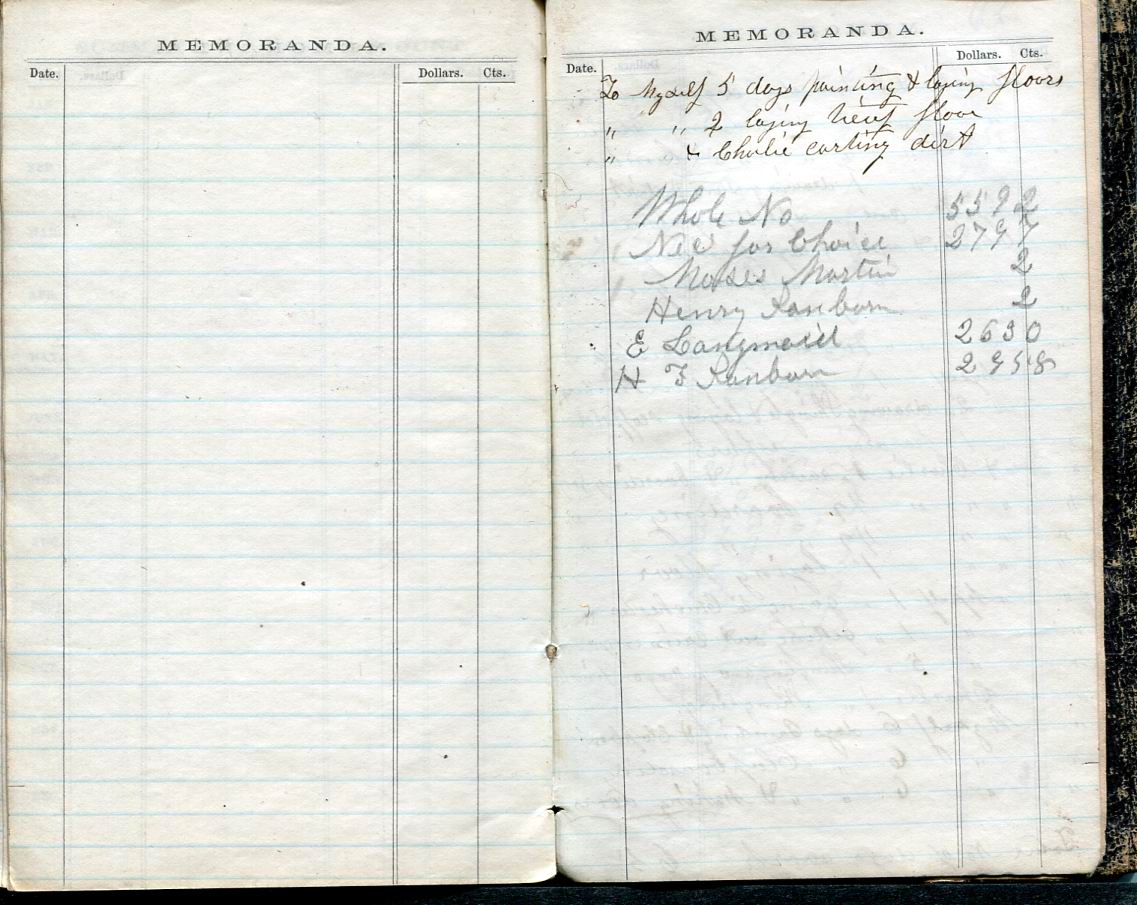 MEMORANDA.
Date. Dollars. Cts.
MEMORANDA.
Date. Dollars. Cts.
To Myself 5 days painting & laying floors
" " 2 laying floor
" & Charlie carting dirt
Whole No 5592
Nec for Choice 2797
Moses Martin 2
Henry Sanborn 2
E Langmaid 2630
H F Sanborn 2958